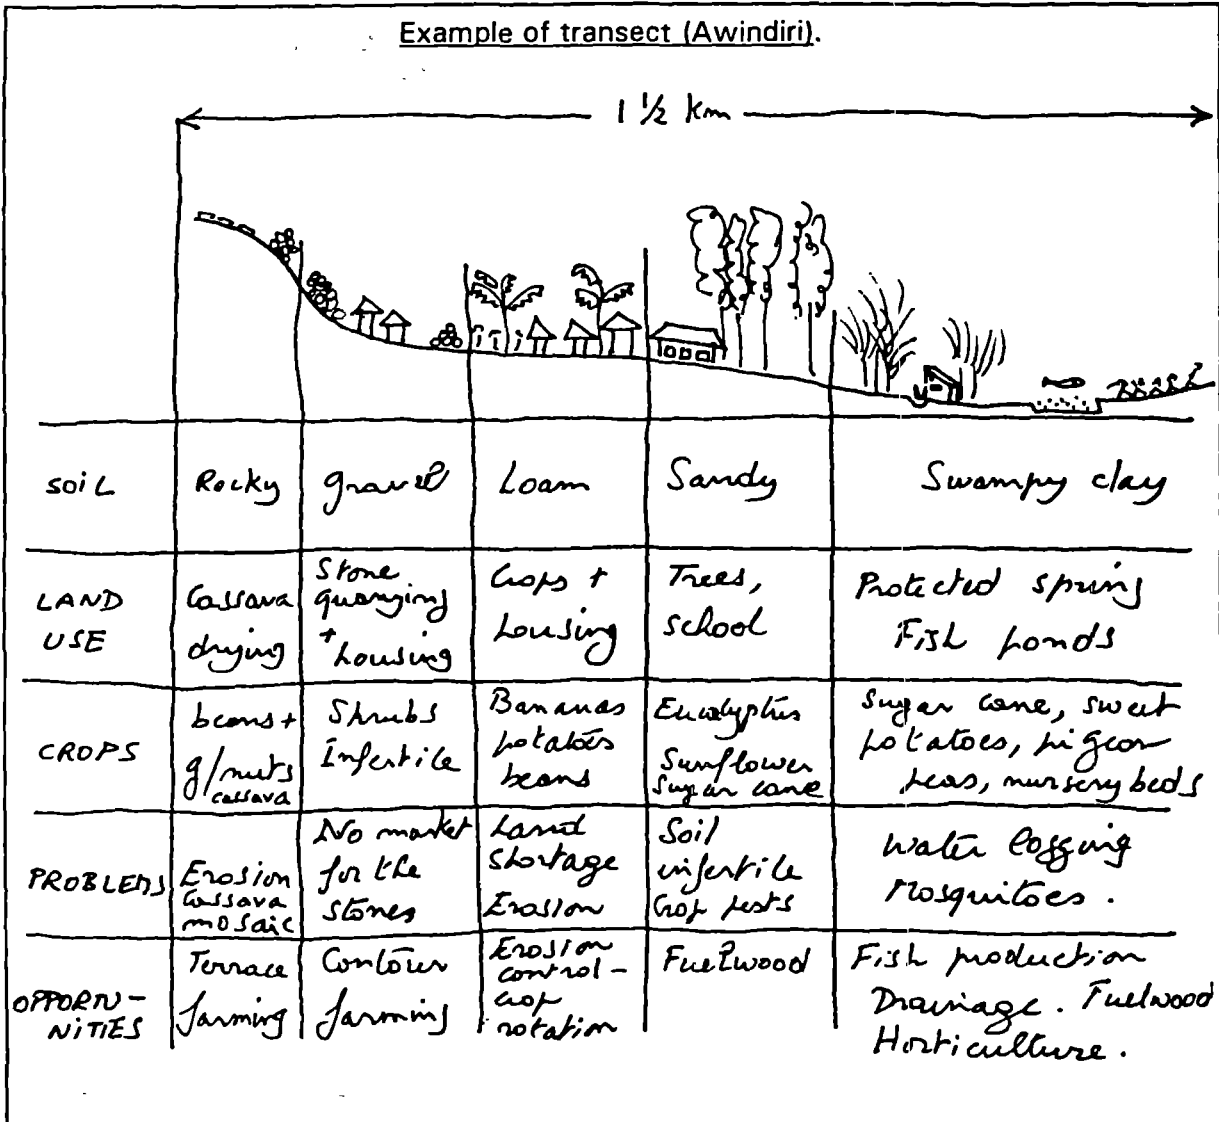 Example of transect (Awindiri).
1 ½ km
SOIL
Rocky
gravel
Loam
Sandy
Swampy clay
LAND
USE
Cassava
drying
Stone
quarrying
+ housing
Crops +
housing
Trees,
school
Protected spring
Fish ponds
CROPS
beans +
g/nuts
cassava
Shrubs
Infertile
Bananas
potatoes
beans
Eucalyptus
Sunflower
Sugar cane
Sugar cane, sweet
potatoes, pigeon
peas, nursery beds
PROBLEMS
Erosion
Cassava
mosaic
No market
for the
stones
Land
shortage
Erosion
Soil
infertile
Crop pests
Water logging
Mosquitoes.
OPPORTU-
NITIES
Terrace
farming
Contour
farming
Erosion
control-
crop
rotation
Fuelwood
Fish production
Drainage. Fuelwood
Horticulture.